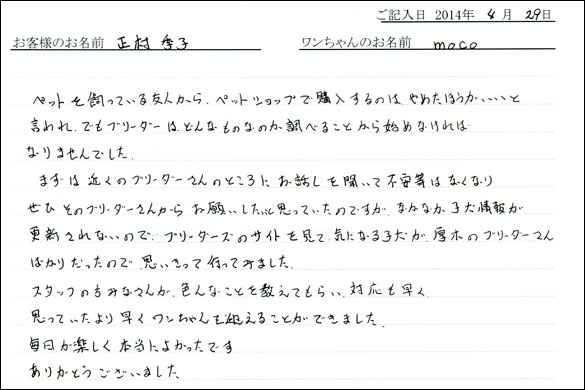 ご記入日 2014年 4月 29日
お客様のお名前 正村 季子 ワンちゃんのお名前 moco
ペットを飼っている友人から、ペットショップで購入するのは やめたほうがいいと
言われ、でもブリーダーは どんなものなのか 調べることから始めなければ
なりませんでした。
まずは 近くのブリーダーさんのところに お話しを聞いて 不安等はなくなり
ぜひ そのブリーダーさんから お願いしたいと思っていたのですが、なかなか 子犬情報が
更新されないので、ブリーダーズのサイトを見て、気になる子犬が、厚木のブリーダーさん
ばかりだったので 思いきって 行ってみました。
スタッフの方みなさんが、色んなことを教えてもらい、対応も早く、
思っていたより早く ワンちゃんを迎えることができました。
毎日が楽しく 本当によかったです
ありがとうございました。